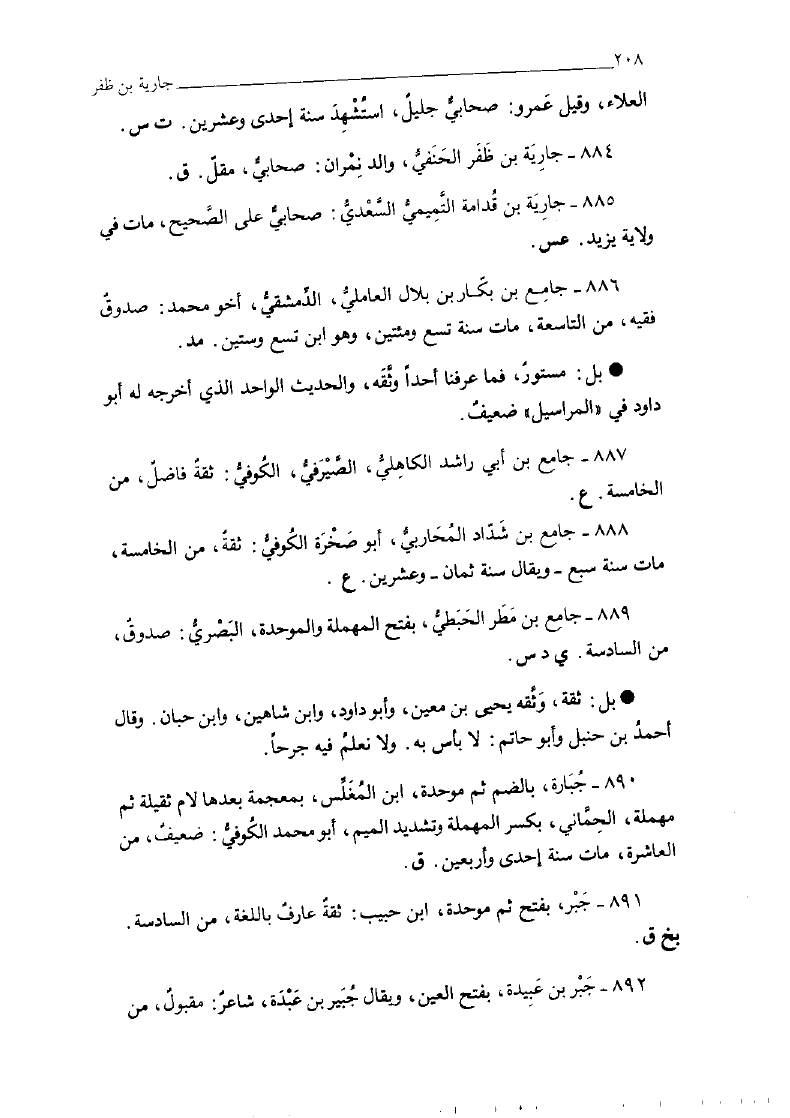 ٢٠٨ جارية بن ظفر
العلاء، وقيل عَمرو: صحابيٌّ جليلٌ، استُشْهِدَ سنة إحدى وعشرين. ت س.
٨٨٤ ـ جارِيَة بن ظَفَر الحَنَفيُّ، والد نِمْران: صحابيٌّ، مقلّ. ق.
٨٨٥ ـ جارِيَة بن قُدامة التَّمِيميُّ السَّعْديُّ: صحابيٌّ على الصَّحيح، مات في
ولاية يزيد. عس.
٨٨٦ ـ جامِع بن بكَّار بن بلال العامليُّ، الدِّمشقيُّ، أخو محمد: صدوقٌ
فقيه، من التاسعة، مات سنة تسع ومئتين، وهو ابن تسع وستين. مد.
● بل: مستورٌ، فما عرفنا أحداً وثَّقه، والحديث الواحد الذي أخرجه له أبو
داود في «المراسيل» ضعيفٌ.
٨٨٧ ـ جامع بن أبي راشد الكاهِليُّ، الصَّيْرَفيُّ، الكُوفيُّ: ثقةٌ فاضلٌ، من
الخامسة. ع.
٨٨٨ ـ جامع بن شَدّاد المُحَاربيُّ، أبو صَخْرَة الكُوفيُّ: ثقةٌ، من الخامسة،
مات سنة سبع ـ ويقال سنة ثمان ـ وعشرين. ع.
٨٨٩ ـ جامع بن مَطَر الحَبَطيُّ، بفتح المهملة والموحدة، البَصْريُّ: صدوقٌ،
من السادسة. ي د س.
● بل: ثقة، وَثَّقه يحيى بن معين، وأبو داود، وابن شاهين، وابن حبان. وقال
أحمدُ بن حنبل وأبو حاتم: لا بأس به. ولا نعلمُ فيه جرحاً.
٨٩٠ ـ جُبَارة، بالضم ثم موحدة، ابن المُغَلِّس، بمعجمة بعدها لام ثقيلة ثم
مهملة، الحِمَّاني، بكسر المهملة وتشديد الميم، أبو محمد الكُوفيُّ: ضعيفٌ، من
العاشرة، مات سنة إحدى وأربعين. ق.
٨٩١ ـ جَبْر، بفتح ثم موحدة، ابن حبيب: ثقةٌ عارفٌ باللغة، من السادسة.
بخ ق.
٨٩٢ ـ جَبْر بن عَبِيدة، بفتح العين، ويقال جُبَير بن عَبْدَة، شاعرٌ: مقبولٌ، من